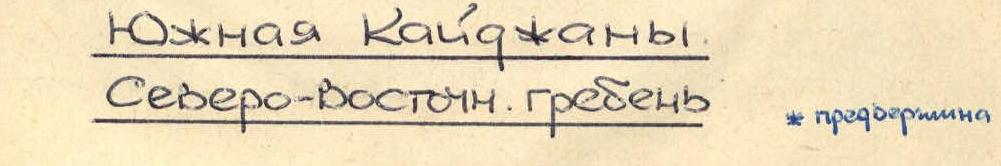 Южная Кайджаны.
Северо-Восточн. гребень
* предвершина